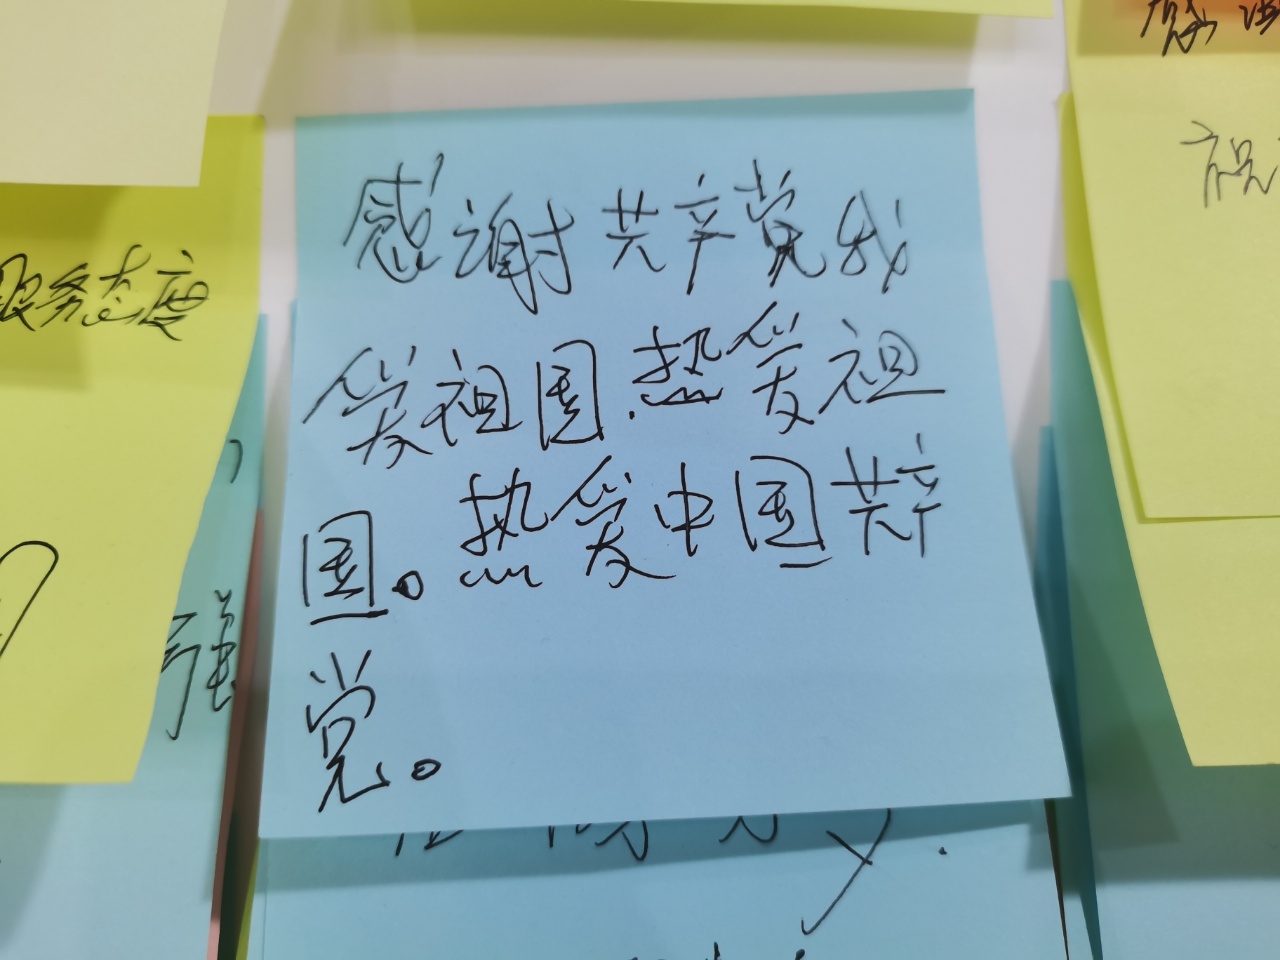 感谢共产党我
爱祖国.热爱祖
国。热爱中国共产
党。
服务态度
感谢
祝